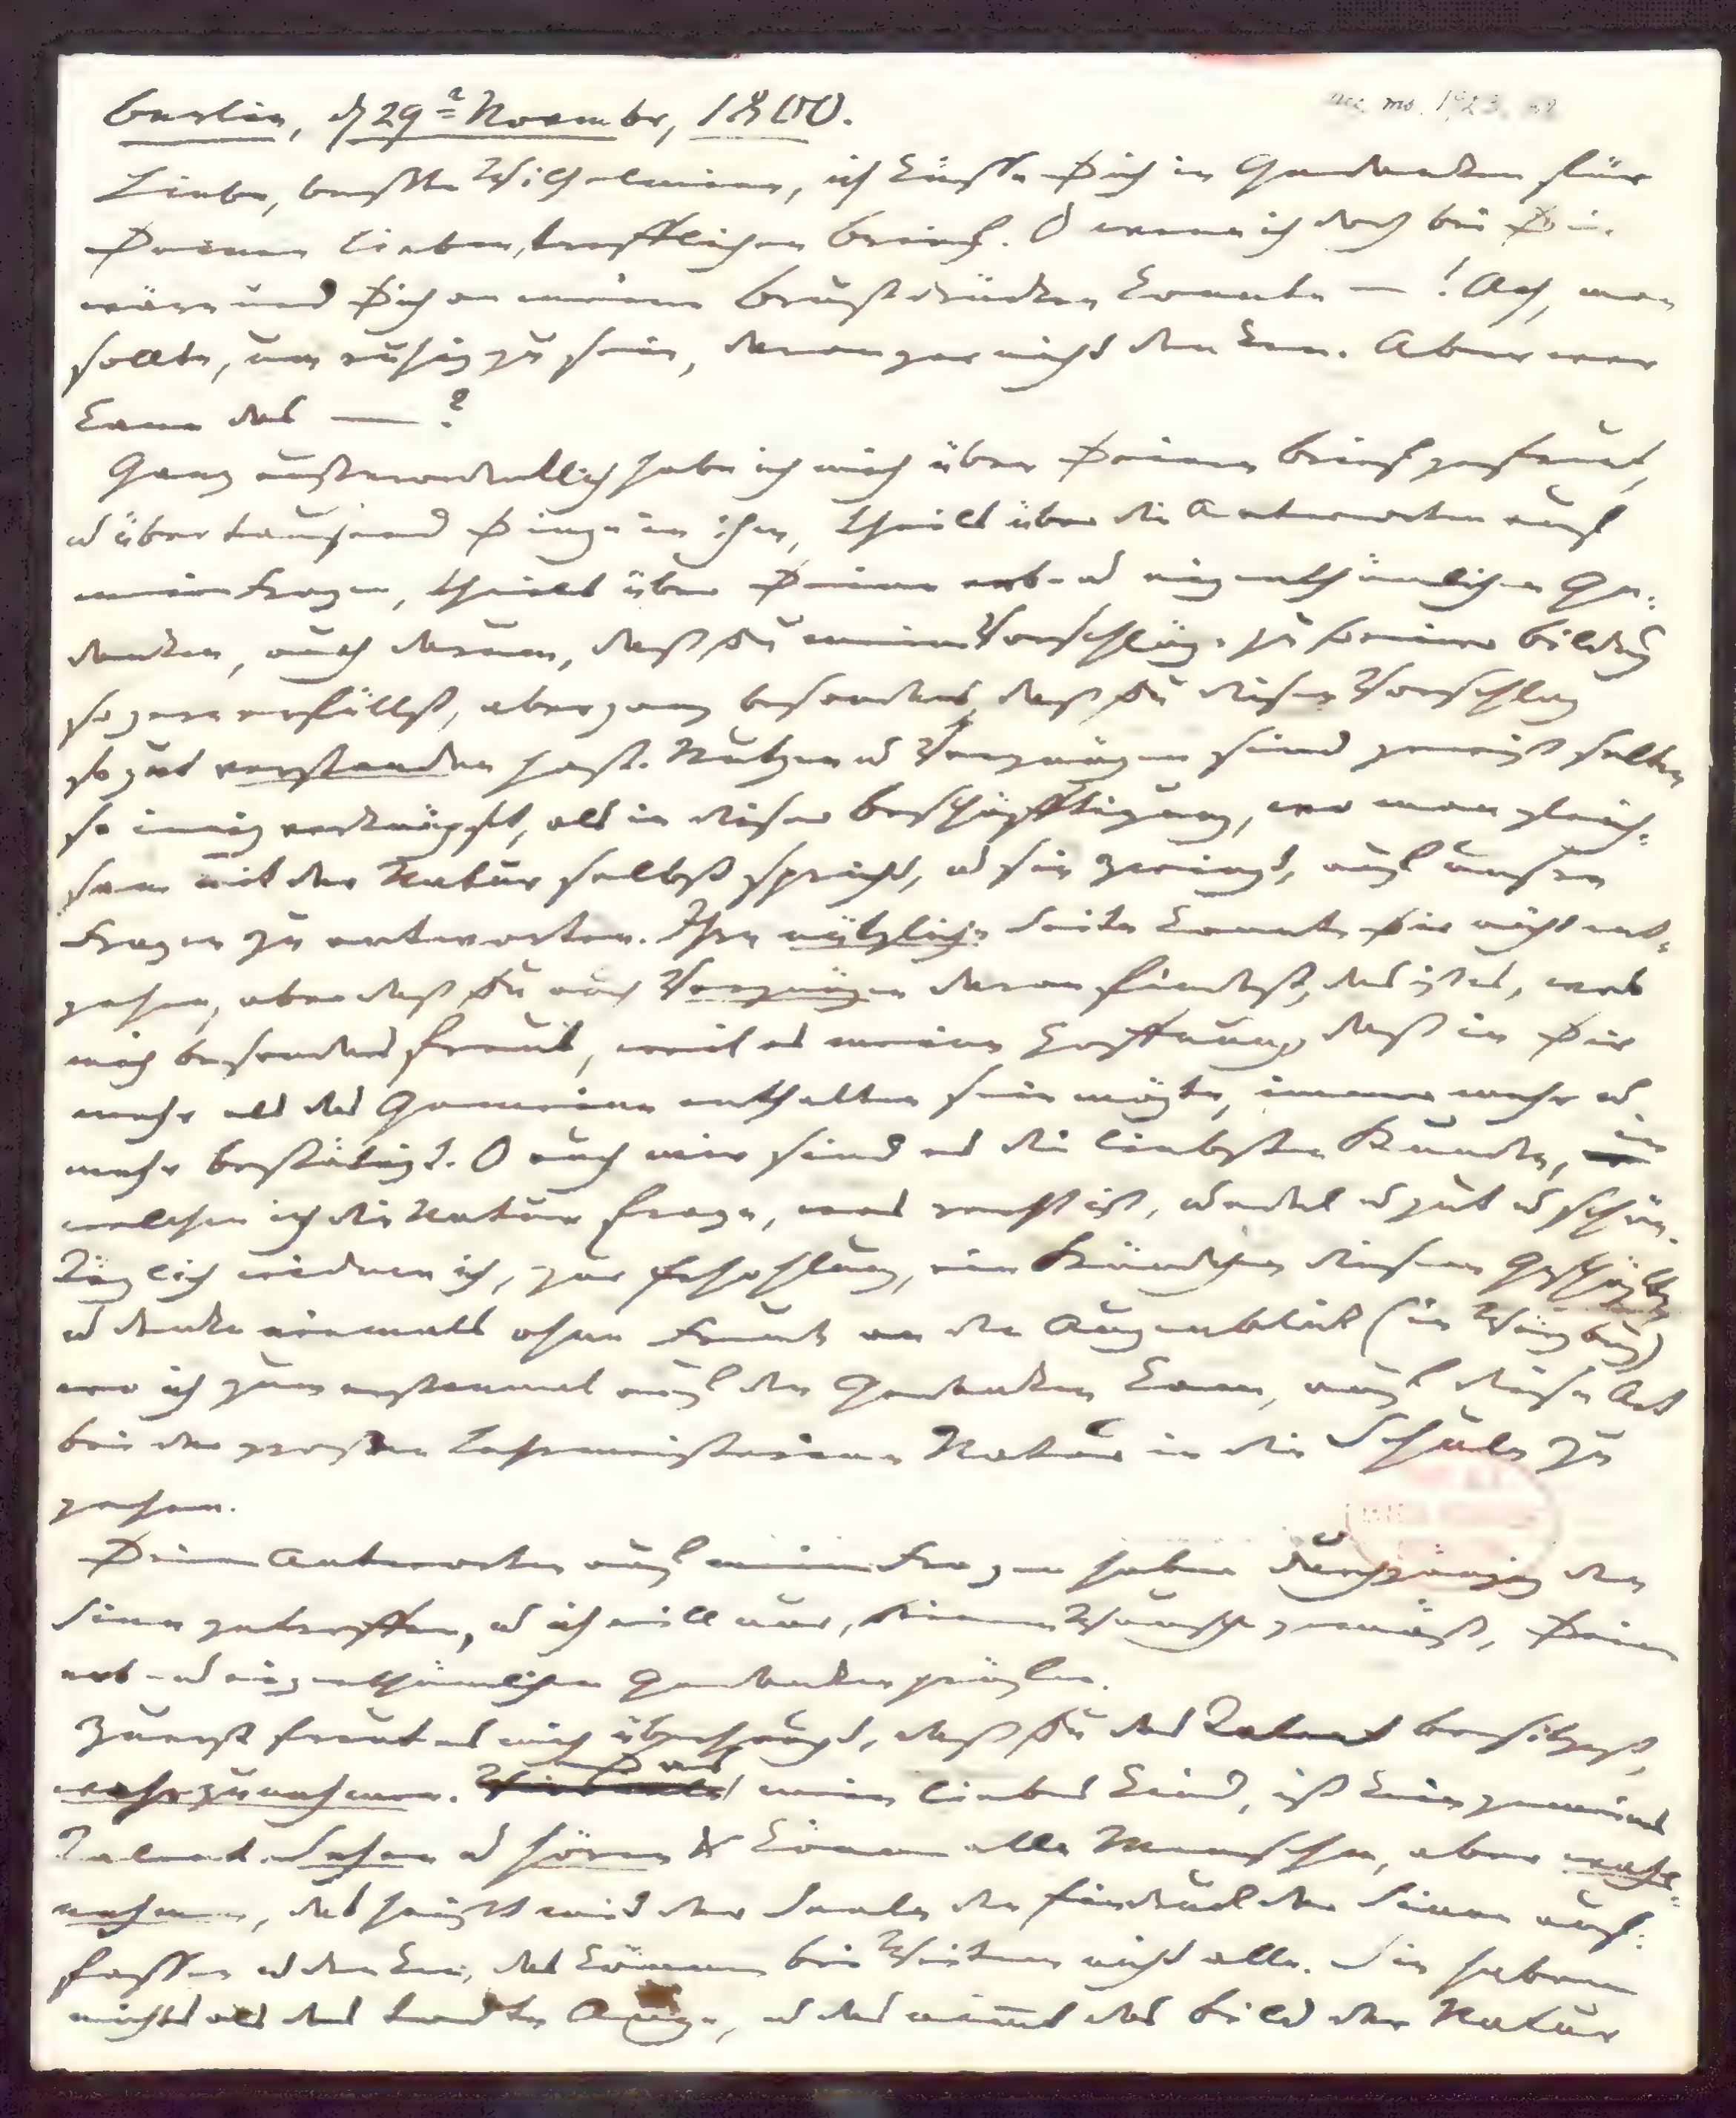 Berlin, d 29t November, 1800.
Liebe, beste Wilhelmine, ich küsse Dich in Gedanken für
Deinen lieben, trefflichen Brief. O wenn ich doch bei Dir
wäre und Dich an meine Brust drücken könnte — ! Ach, man
sollte, um ruhig zu sein, daran gar nicht denken. Aber wer
kann das — ?
Ganz außerordentlich habe ich mich über Deinen Brief gefreut,
u über tausend Dinge in ihm, theils über die Antworten auf
meine Fragen, theils über Deine erb- u eigenthümlichen Ge-
danken, auch darum, daß Du meine Vorschläge zu Deiner Bildung
so gern erfüllst, aber ganz besonders, daß Du diesen Vorschlag
so gut verstanden hast. Nutzen u Vergnügen sind gewiß selten
so innig verknüpft, als in dieser Beschäfftigung, wo man gleich-
sam mit der Natur selbst spricht, u sie zwingt, auf unsre
Fragen zu antworten. Ihre nützliche Seite konnte Dir nicht ent-
gehen, aber daß Du auch Vergnügen daran findest, das ist es, was
mich besonders freut, weil es meine Hoffnung, daß in Dir
mehr als das Gemeine enthalten sein mögte, immer mehr u
mehr bestätigt. O auch mir sind es die liebsten Stunden, in
welchen ich die Natur frage, was recht ist, u edel u gut u schön.
Täglich widme ich, zur Erhohlung, ein Stündchen diesem Geschäffte,
u denke niemals ohne Freude an den Augenblick (in Würzburg)
wo ich zum erstenmal auf den Gedanken kam, auf diese Art
bei der großen Lehrmeisterinn Natur in die Schule zu
gehen.
Deine Antworten auf meine Fragen haben durchgängig den
Sinn getroffen, u ich will nur, Deinem Wunsche gemäß, Deine
erb- u eigenthümlichen Gedanken prüfen.
Zuerst freut es mich überhaupt, daß Du das Talent besitzest,
wahrzunehmen. Das, mein liebes Kind, ist kein gemeines
Talent. Sehen u hören können alle Menschen, aber wahr-
nehmen, das heißt mit der Seele den Eindruck der Sinne auf-
fassen u denken, das können bei Weitem nicht alle. Sie haben
nichts als das todte Auge, u das nimmt das Bild der Natur